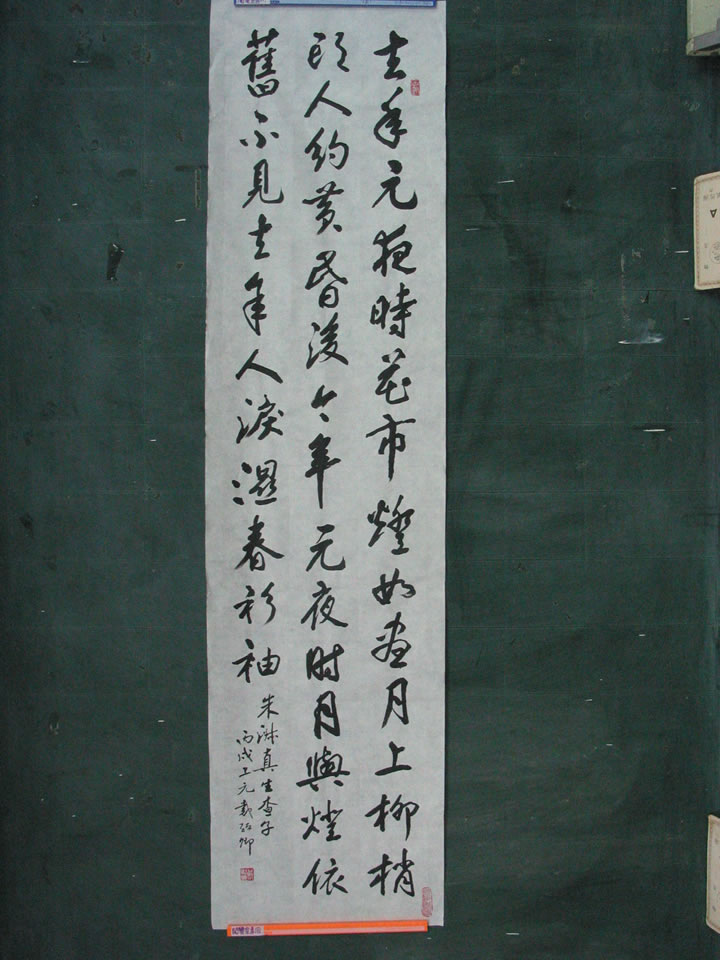 去年元夜時花市燈如畫月上柳梢
頭人約黃昏後今年元夜时月與燈依
舊不見去年人淚濕春衫袖
朱淑真生查子
丙戌上元戴